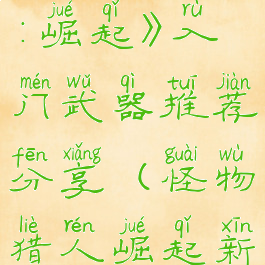 jué qǐ rù
:崛起》入
mén wǔ qì tuī jiàn
门武器推荐
fēn xiǎng guài wù
分享（怪物
liè rén jué qǐ xīn
猎人崛起新